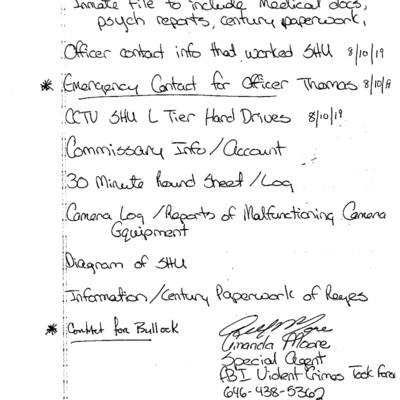 Inmate File to include Medical docs,
psych reports, century paperwork,
Officer contact info that worked SHU 8/10/19
* Emergency Contact for Officer Thomas 8/10/19
CCTV SHU L Tier Hard Drives 8/10/19
Commissary Info/Account
30 Minute Round Sheet/Log
Camera Log/Reports of Malfunctioning Camera
Equipment
Diagram of SHU
Information/Century Paperwork of Reyes
* Contact for Bullock
Amanda Moore
Special Agent
FBI Violent Crimes Task Force
646-438-5362